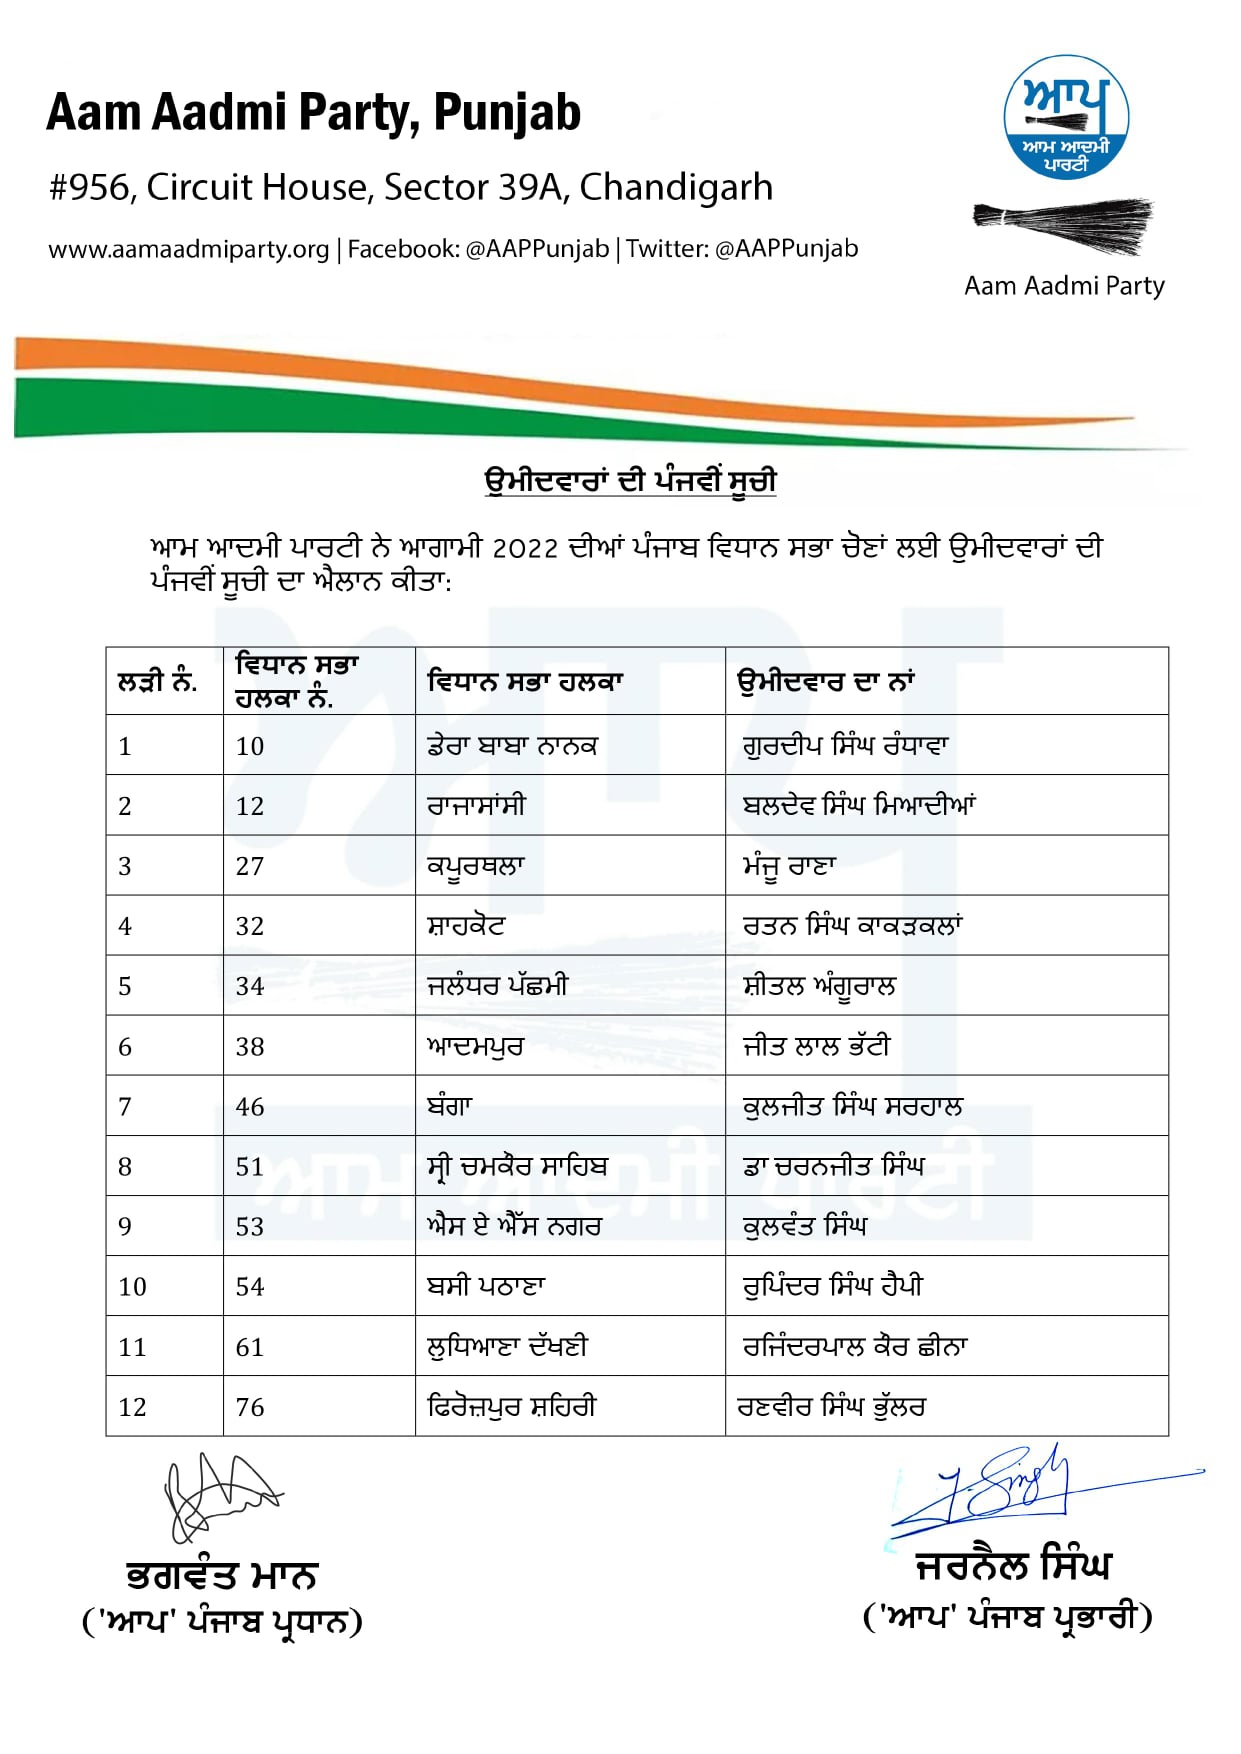 Aam Aadmi Party, Punjab
#956, Circuit House, Sector 39A, Chandigarh
www.aamaadmiparty.org | Facebook: @AAPPunjab | Twitter: @AAPPunjab
ਆਪ
ਆਮ ਆਦਮੀ
ਪਾਰਟੀ
Aam Aadmi Party
ਉਮੀਦਵਾਰਾਂ ਦੀ ਪੰਜਵੀਂ ਸੂਚੀ
ਆਮ ਆਦਮੀ ਪਾਰਟੀ ਨੇ ਆਗਾਮੀ 2022 ਦੀਆਂ ਪੰਜਾਬ ਵਿਧਾਨ ਸਭਾ ਚੋਣਾਂ ਲਈ ਉਮੀਦਵਾਰਾਂ ਦੀ
ਪੰਜਵੀਂ ਸੂਚੀ ਦਾ ਐਲਾਨ ਕੀਤਾ:
ਲੜੀ ਨੰ. ਵਿਧਾਨ ਸਭਾ ਹਲਕਾ ਨੰ. ਵਿਧਾਨ ਸਭਾ ਹਲਕਾ ਉਮੀਦਵਾਰ ਦਾ ਨਾਂ
1 10 ਡੇਰਾ ਬਾਬਾ ਨਾਨਕ ਗੁਰਦੀਪ ਸਿੰਘ ਰੰਧਾਵਾ
2 12 ਰਾਜਾਸਾਂਸੀ ਬਲਦੇਵ ਸਿੰਘ ਮਿਆਦੀਆਂ
3 27 ਕਪੂਰਥਲਾ ਮੰਜੂ ਰਾਣਾ
4 32 ਸ਼ਾਹਕੋਟ ਰਤਨ ਸਿੰਘ ਕਾਕੜਕਲਾਂ
5 34 ਜਲੰਧਰ ਪੱਛਮੀ ਸ਼ੀਤਲ ਅੰਗੂਰਾਲ
6 38 ਆਦਮਪੁਰ ਜੀਤ ਲਾਲ ਭੱਟੀ
7 46 ਬੰਗਾ ਕੁਲਜੀਤ ਸਿੰਘ ਸਰਹਾਲ
8 51 ਸ੍ਰੀ ਚਮਕੌਰ ਸਾਹਿਬ ਡਾ ਚਰਨਜੀਤ ਸਿੰਘ
9 53 ਐਸ ਏ ਐੱਸ ਨਗਰ ਕੁਲਵੰਤ ਸਿੰਘ
10 54 ਬਸੀ ਪਠਾਣਾ ਰੁਪਿੰਦਰ ਸਿੰਘ ਹੈਪੀ
11 61 ਲੁਧਿਆਣਾ ਦੱਖਣੀ ਰਜਿੰਦਰਪਾਲ ਕੌਰ ਛੀਨਾ
12 76 ਫਿਰੋਜ਼ਪੁਰ ਸ਼ਹਿਰੀ ਰਣਵੀਰ ਸਿੰਘ ਭੁੱਲਰ
J. Singh
ਭਗਵੰਤ ਮਾਨ
('ਆਪ' ਪੰਜਾਬ ਪ੍ਰਧਾਨ)
ਜਰਨੈਲ ਸਿੰਘ
('ਆਪ' ਪੰਜਾਬ ਪ੍ਰਭਾਰੀ)
ਆਪ
ਆਮ ਆਦਮੀ ਪਾਰਟੀ